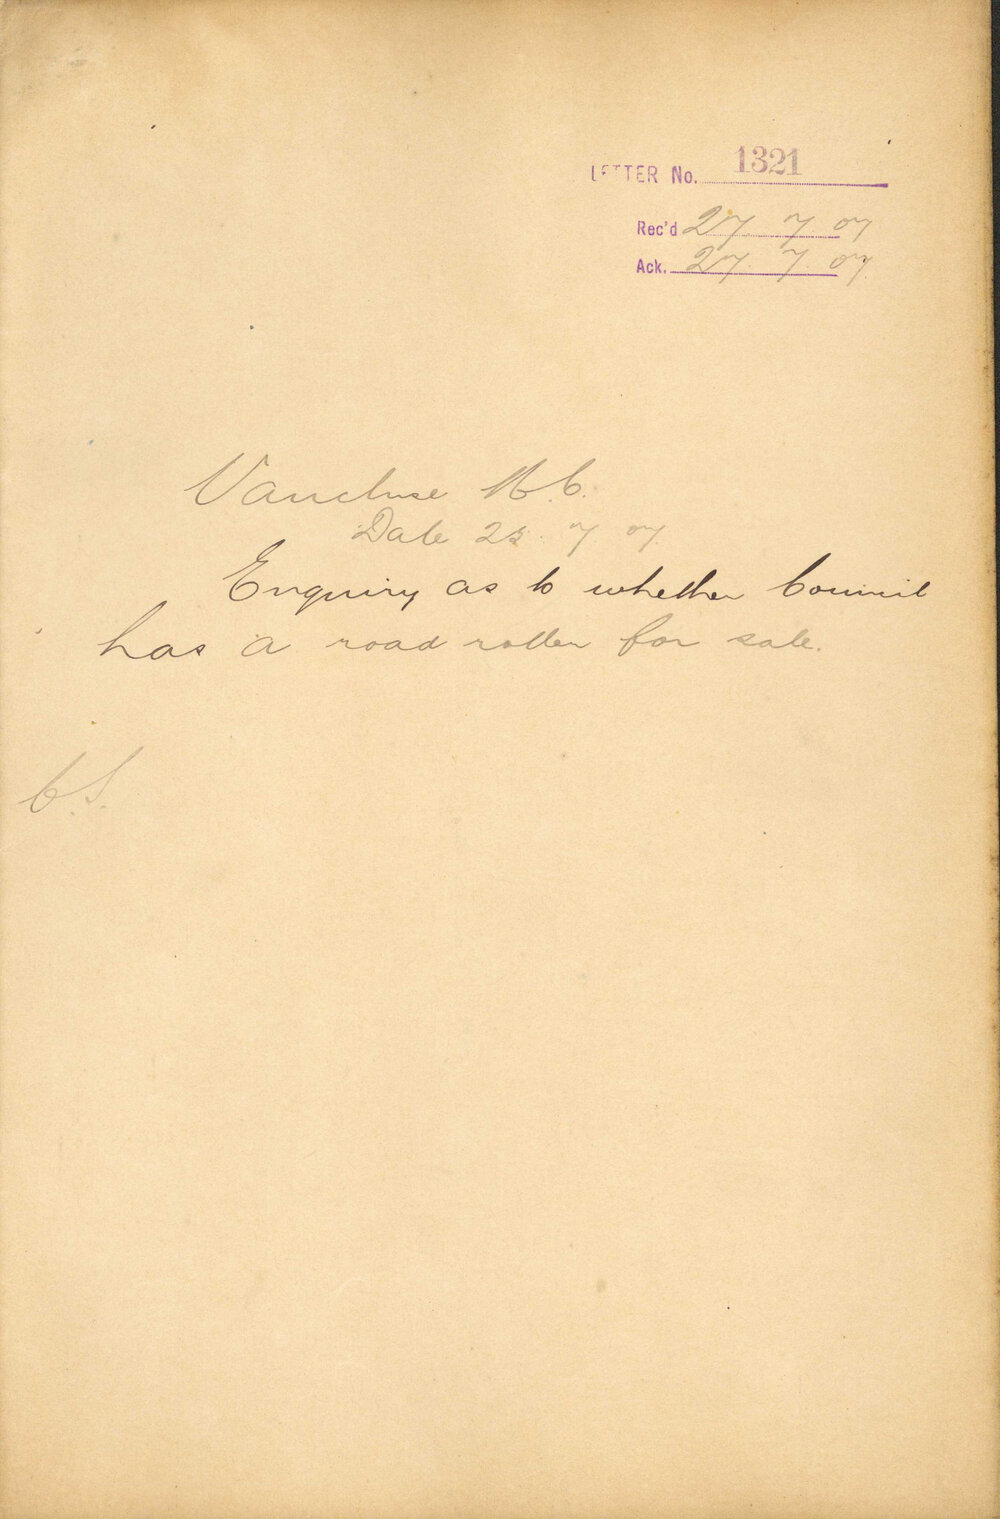 LETTER No. 1321
Rec'd 27 7 07
Ack. 27 7 07
Vaucluse M.C.
Date 25 7 07
Enquiry as to whether Council
has a road roller for sale.
C.S.